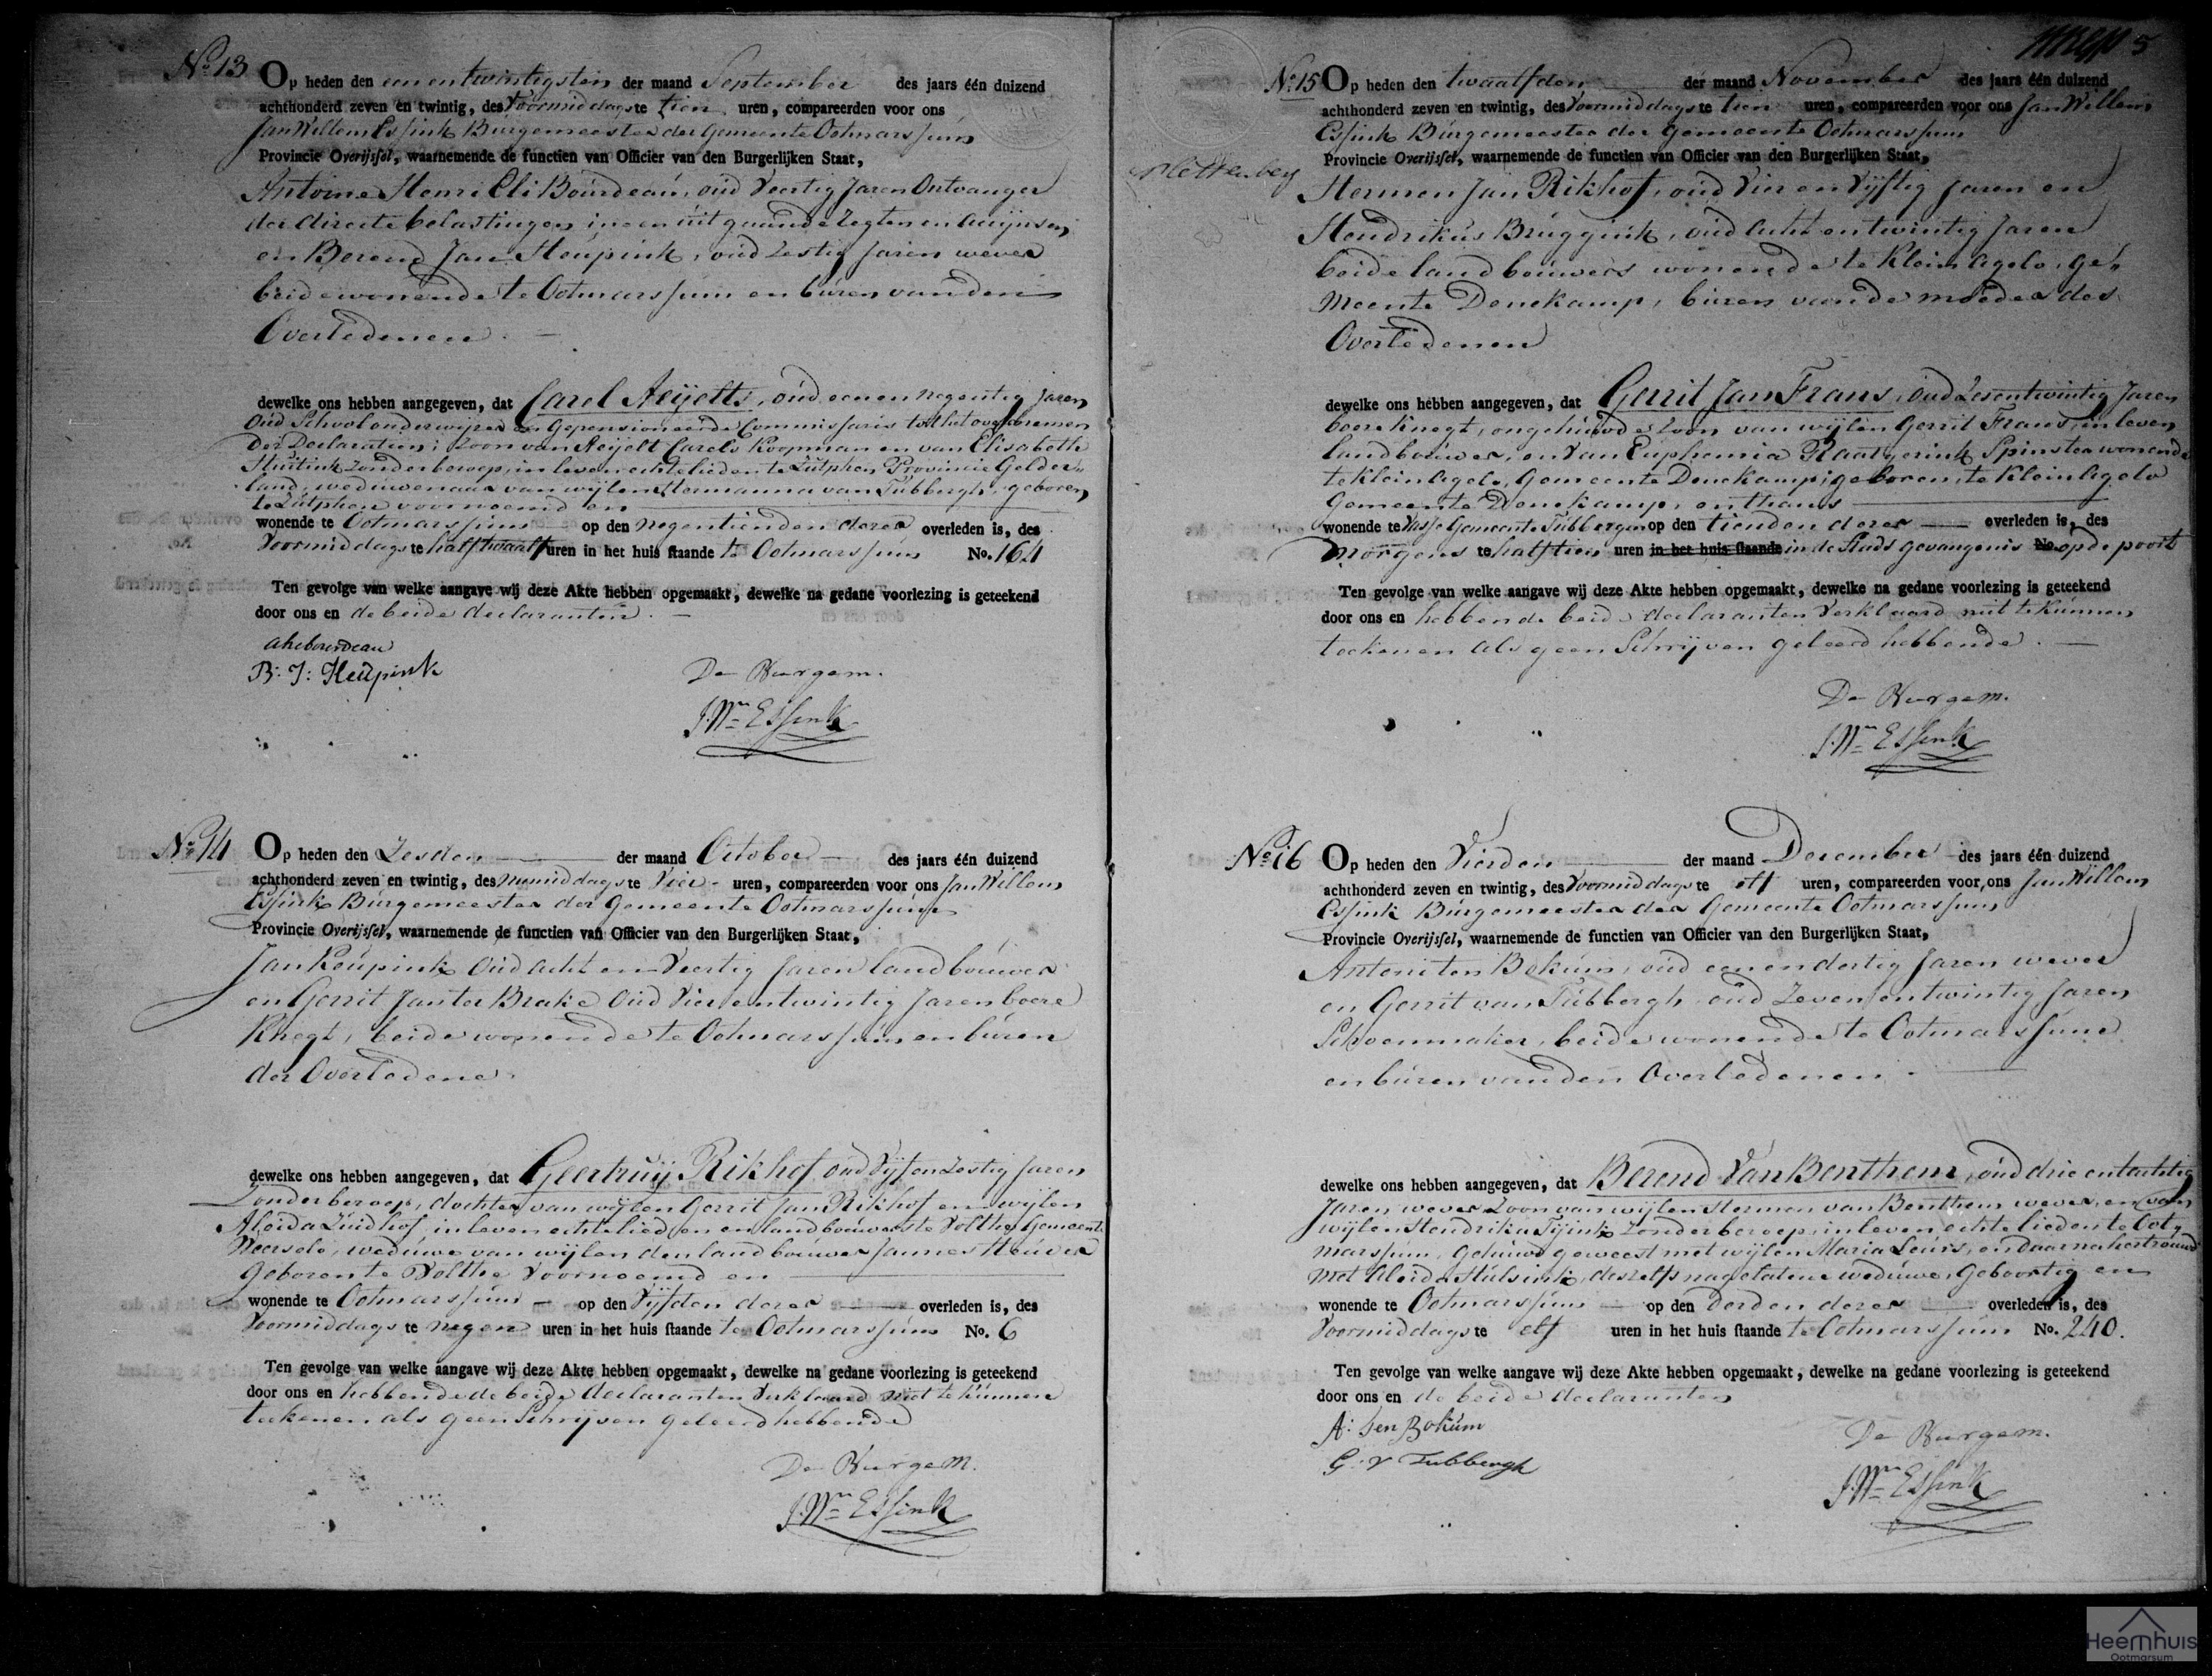 No 13 Op heden den een en twintigsten der maand September des jaars één duizend
achthonderd zeven en twintig, des Voormiddags te tien uren, compareerden voor ons
Jan Willem Essink Burgemeester der Gemeente Ootmarssum
Provincie Overijssel, waarnemende de functien van Officier van den Burgerlijken Staat,
Antoine Henri Eli Bourdeau, oud Veertig Jaren Ontvanger
der directe belastingen in en uitgaande regten en accijnsen
en Berend Jan Heupink, oud Zestig Jaren wever
beide wonende te Ootmarssum en buren van den
Overledenen
dewelke ons hebben aangegeven, dat Carel Reijelts, oud een en negentig Jaren
Oud Schoolonderwijzer en Gepensioneerde Commissaris tot het overnemen
der Declaratien; Zoon van Reijelt Carels Koopman en van Elisabeth
Sluitink zonder beroep, in leven echtelieden te Zutphen Provincie Gelder„
land, weduwenaar van wijlen Hermanna van Tubbergh, geboren
te Zutphen voornoemd en
wonende te Ootmarssum op den negentienden dezer overleden is, des
Voormiddags te half twaalf uren in het huis staande te Ootmarssum No. 164
Ten gevolge van welke aangave wij deze Akte hebben opgemaakt, dewelke na gedane voorlezing is geteekend
door ons en de beide declaranten.
ahebourdeau
B: J: Heupink
De Burgem.
J.Wm Essink
No 14 Op heden den Zesden der maand October des jaars één duizend
achthonderd zeven en twintig, des namiddags te Vier uren, compareerden voor ons Jan Willem
Essink Burgemeester der Gemeente Ootmarssum
Provincie Overijssel, waarnemende de functien van Officier van den Burgerlijken Staat,
Jan Reupink oud acht en Veertig Jaren landbouwer
en Gerrit Jan ter Brake oud Vier en twintig Jaren boere
Knegt, beide wonende te Ootmarssum en buren
der Overledene.
dewelke ons hebben aangegeven, dat Geertruij Rikhof oud Vijf en Zestig Jaren
Zonder beroep, dochter van wijlen Gerrit Jan Rikhof en wijlen
Aleida Zuidhof, in leven echtelieden en landbouwers te Volthe Gemeente
Weerselo, weduwe van wijlen den landbouwer Jannes Heuver
Geboren te Volthe Voornoemd en
wonende te Ootmarssum op den Vijfden dezer overleden is, des
Voormiddags te negen uren in het huis staande te Ootmarssum No. 6
Ten gevolge van welke aangave wij deze Akte hebben opgemaakt, dewelke na gedane voorlezing is geteekend
door ons en hebbende de beide declaranten Verklaard niet te kunnen
teekenen als geen Schrijven geleerd hebbende
De Burgem.
J.Wm Essink
5
No 15 Op heden den twaalfden der maand November des jaars één duizend
achthonderd zeven en twintig, des Voormiddags te tien uren, compareerden voor ons Jan Willem
Essink Burgemeester der Gemeente Ootmarssum
Provincie Overijssel, waarnemende de functien van Officier van den Burgerlijken Staat,
Hermen Jan Rikhof, oud Vier en Vijftig Jaren en
Hendrikus Bruggink, oud acht en twintig Jaren
beide landbouwers wonende te Klein Agelo, ge„
meente Denekamp, buren van de moeder des
Overledenen
dewelke ons hebben aangegeven, dat Gerrit Jan Frans, oud Zes en twintig Jaren
boereknegt, ongehuwde Zoon van wijlen Gerrit Frans, in leven
landbouwer, en van Euphemia Raatgerink Spinster wonende
te Klein Agelo, Gemeente Denekamp, geboren te Klein Agelo
Gemeente Denekamp, en thans
wonende te Vasse Gemeente Tubbergen op den tienden dezer overleden is, des
morgens te half tien uren in het huis staande in de Stads gevangenis No. op de poort
Ten gevolge van welke aangave wij deze Akte hebben opgemaakt, dewelke na gedane voorlezing is geteekend
door ons en hebbende beide declaranten Verklaard niet te kunnen
teekenen als geen Schrijven geleerd hebbende.
De Burgem.
J.Wm Essink
No 16 Op heden den Vierden der maand December des jaars één duizend
achthonderd zeven en twintig, des Voormiddags te elf uren, compareerden voor ons Jan Willem
Essink Burgemeester der Gemeente Ootmarssum
Provincie Overijssel, waarnemende de functien van Officier van den Burgerlijken Staat,
Antoni ten Bokum, oud een en dertig Jaren wever
en Gerrit van Tubbergh oud Zeven en twintig Jaren
Schoenmaker, beide wonende te Ootmarssum
en buren van den Overledenen.
dewelke ons hebben aangegeven, dat Berend Van Benthem, oud drie en tachtig
Jaren, wever Zoon van wijlen Hermen van Benthem wever, en van
wijlen Hendrika Tijink zonder beroep, in leven echtelieden te Oot„
marssum, gehuwd geweest met wijlen Maria Leurs, en daarna hertrouwd
met Aleida Hulsink, deszelfs nagelatene weduwe, Geboortig en
wonende te Ootmarssum op den derden dezer overleden is, des
Voormiddags te elf uren in het huis staande te Ootmarssum No. 240.
Ten gevolge van welke aangave wij deze Akte hebben opgemaakt, dewelke na gedane voorlezing is geteekend
door ons en de beide declaranten
A: ten Bokum
G: v Tubbergh
De Burgem.
J.Wm Essink
Heemhuis
Ootmarsum